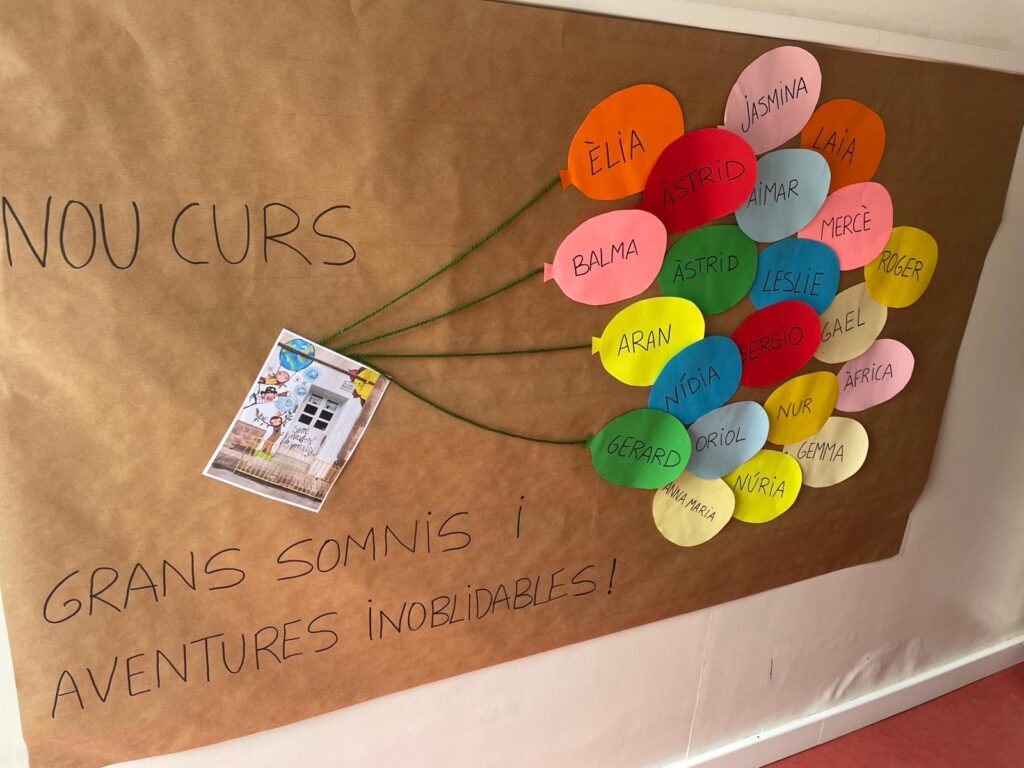 NOU CURS
GRANS SOMNIS I
AVENTURES INOBLIDABLES!
JASMINA
ÈLIA
LAIA
ÀSTRID
AIMAR
MERCÈ
BALMA
ÀSTRID
LESLIE
ROGER
ARAN
SERGIO
GAEL
NÍDIA
ÀFRICA
NUR
GERARD
ORIOL
GEMMA
NÚRIA
ANNA MARIA